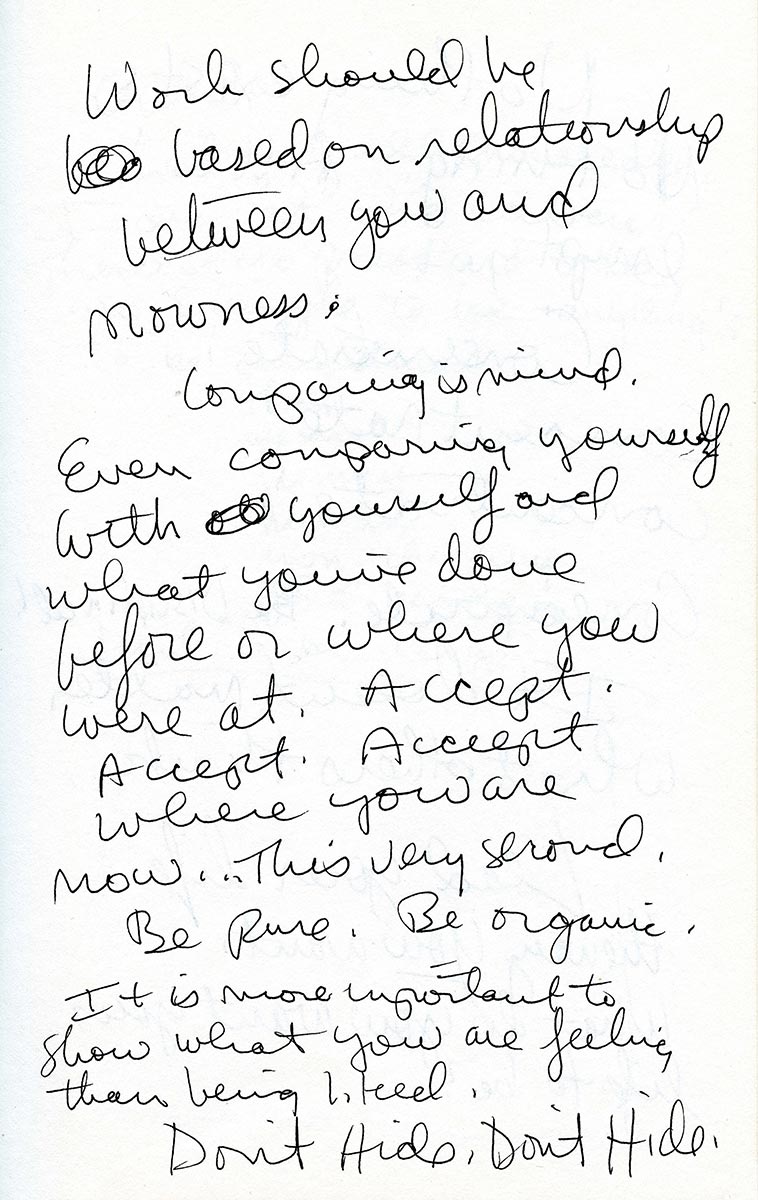 Work should be
based on relationship
between you and
nowness;
Comparing is mind.
Even comparing yourself
with yourself and
what you've done
before or where you
were at. Accept.
Accept. Accept
where you are
now... This very second.
Be Pure. Be organic.
It is more important to
show what you are feeling
than being liked.
Don't Hide. Don't Hide.